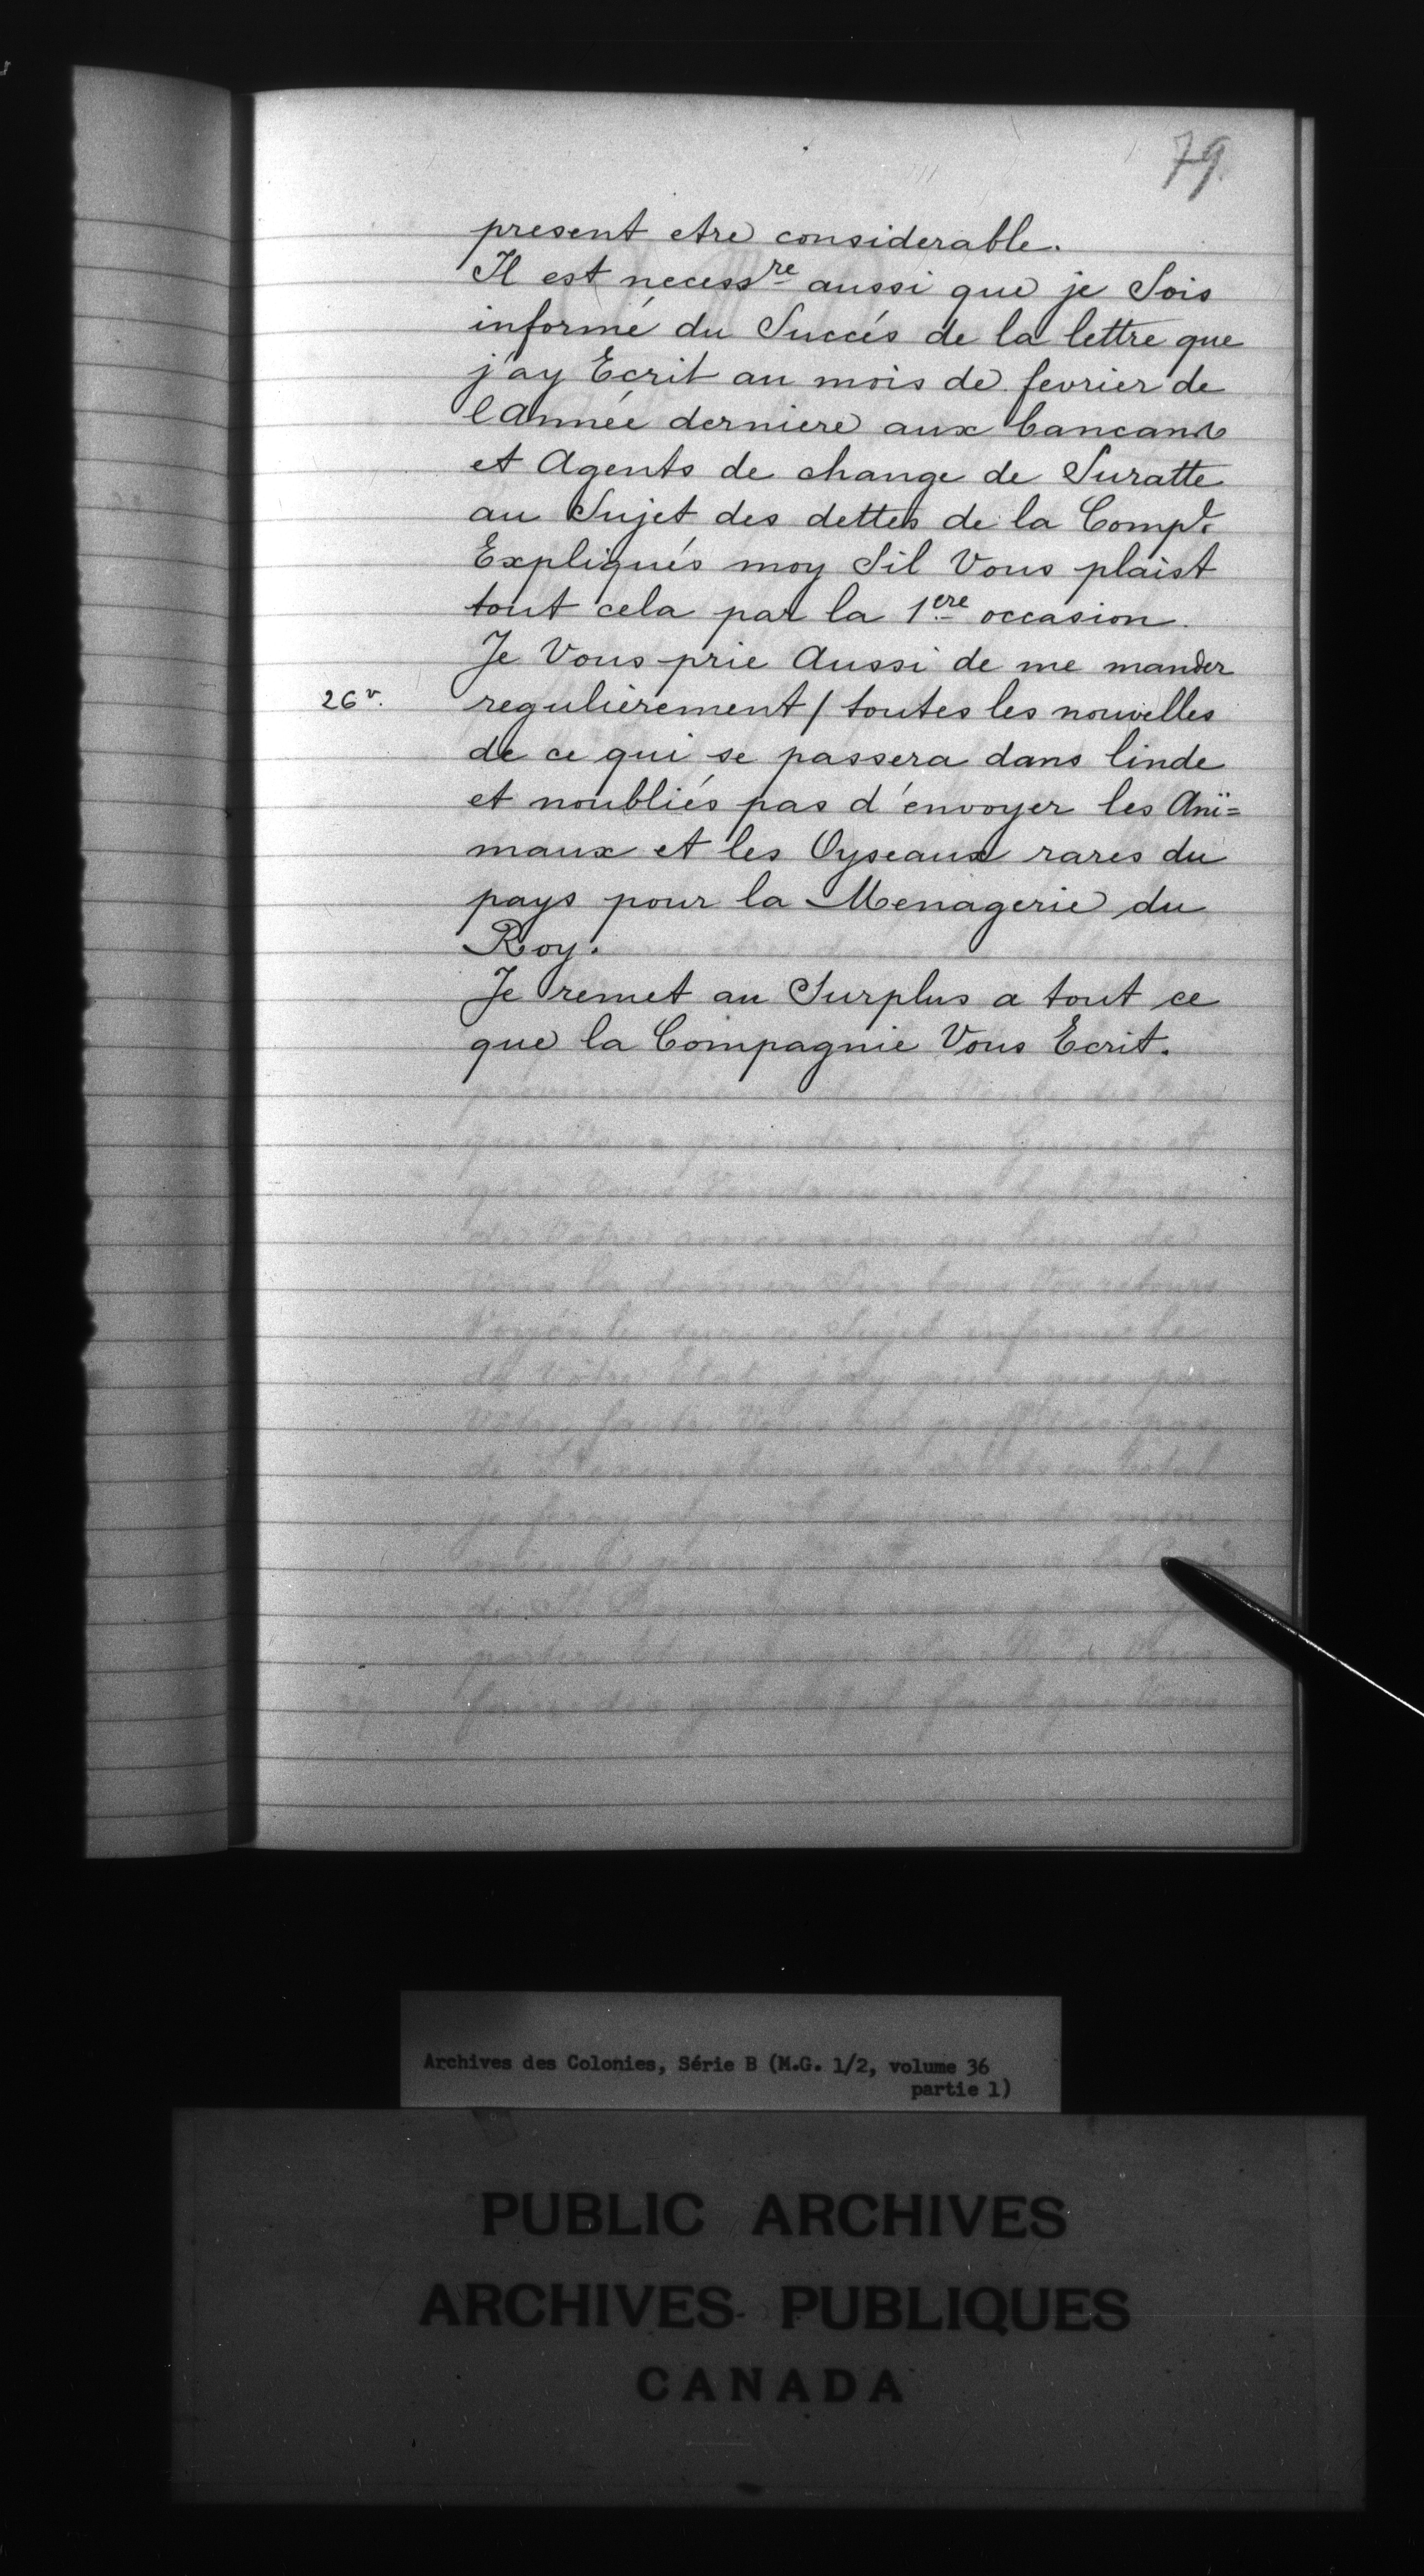 79.
present etre considerable.
Il est necess.re aussi que je Sois
informé du Succés de la lettre que
j'ay Ecrit au mois de fevrier de
lAnnée derniere aux
et Agents de change de Suratte
au Sujet des dettes de la Comp.e
Expliqués moy Sil Vous plaist
tout cela par la 1.ere occasion.
Je Vous prie Aussi de me mander
26 v. regulierement / toutes les nouvelles
de ce qui se passera dans linde
et noubliés pas d'envoyer les Ani=
maux et les Oyseaux rares du
pays pour la Menagerie du
Roy.
Je remet au Surplus a tout ce
que la Compagnie Vous Ecrit.
Archives des Colonies, Série B (M.G. 1/2, volume 36
partie 1)
PUBLIC ARCHIVES
ARCHIVES PUBLIQUES
CANADA